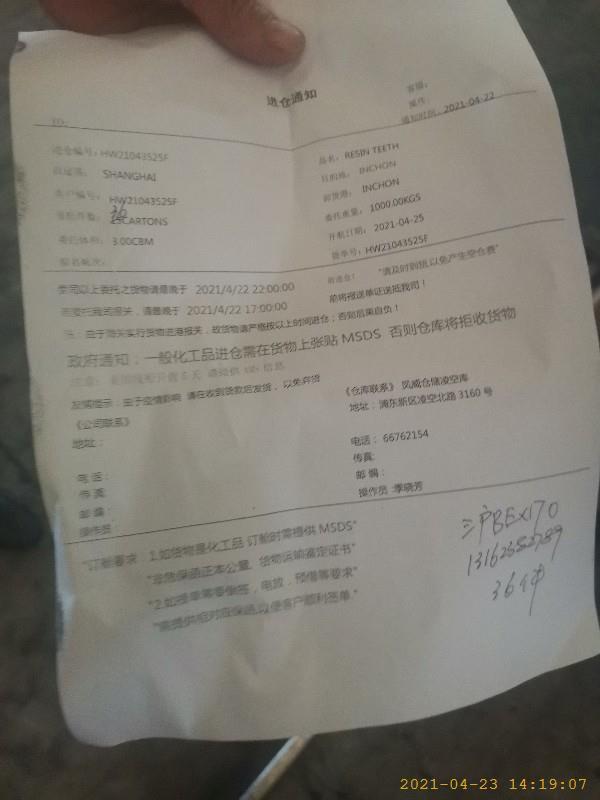 进仓通知
TO:
客服:
操作:
通知时间: 2021-04-22
进仓编号: HW21043525F
品名: RESIN TEETH
SHANGHAI
目的地: INCHON
客户编号: HW21043525F
卸货港: INCHON
36
CARTONS
委托重量: 1000.00KGS
委托体积: 3.00CBM
开航日期: 2021-04-25
船名航次:
提单号: HW21043525F
"请及时到货以免产生空仓费"
贵司以上委托之货物请最晚于 2021/4/22 22:00:00
前送仓!
若委托我司报关,请最晚于 2021/4/22 17:00:00
前将报送单证送抵我司!
注:由于海关实行货物进港报关,故货物请严格按以上时间进仓;否则后果自负!
政府通知:一般化工品进仓需在货物上张贴 MSDS 否则仓库将拒收货物
发货提示:由于疫情影响 请在收到货款后发货,以免弃货
《公司联系》
地址:
《仓库联系》 凤威仓储凌空库
地址:浦东新区凌空北路 3160 号
电话:
电话: 66762154
传真:
传真:
邮编:
邮编:
操作员
操作员 :季晓芳
"订舱要求 1.如货物是化工品 订舱时需提供 MSDS"
"非危保函正本公章, 货物运输鉴定证书"
"2.如提单需要倒签,电放,预借等要求"
"需提供相对应保函,以便客户顺利签单."
沪BEX170
36件
2021-04-23 14:19:07